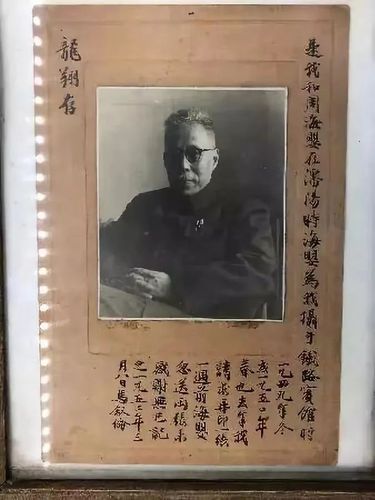 是我和周海嬰在瀋陽時海嬰為我攝于鐵路賓館時
一九四九年冬
或一九五〇年
春也去年我
請求再印一張
一週前海嬰
忽送兩張來
感謝無已記
之一九五三年三
月八日馬叙倫
龍翔存